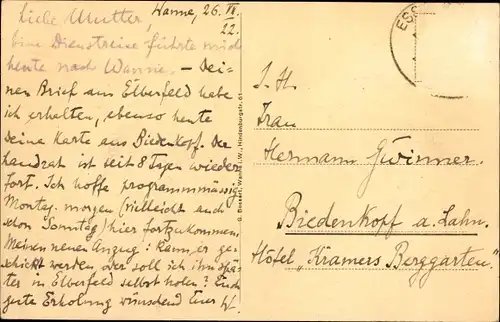 Wanne, 26. VI.
22.
Liebe Mutter,
eine Dienstreise führte mich
heute nach Wanne. – Dei-
nen Brief aus Elberfeld habe
ich erhalten, ebenso heute
Deine Karte aus Biedenkopf. Der
Landrat ist seit 8 Tgen wieder
fort. Ich hoffe programmmässig
Montag morgen (vielleicht auch
schon Sonntag) hier fortzukommen.
Meinen neuen Anzug: Kann er ge-
schickt werden oder soll ich ihn spä-
ter in Elberfeld selbst holen? Euch
gute Erholung wünschend Euer
Wanne i. W., Hindenburgstr. 61
ESS
I. H.
Frau
Hermann Gwinner.
Biedenkopf a. Lahn.
Hôtel „Kramers Berggarten"